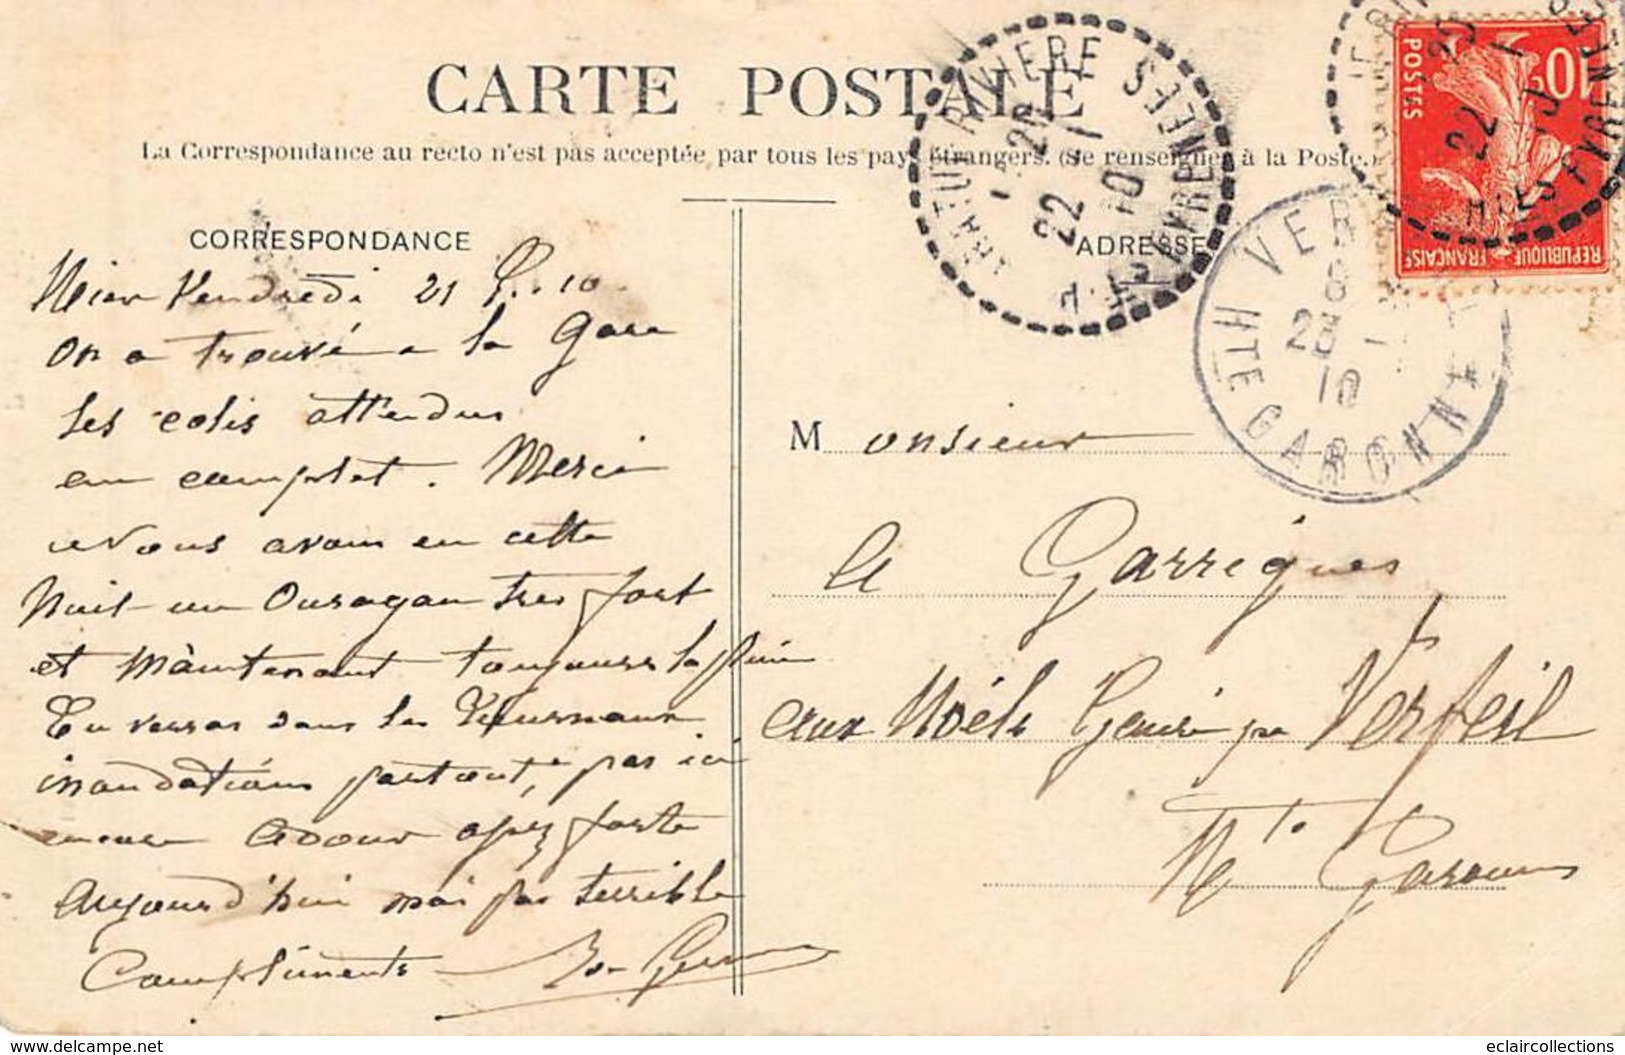 CARTE POSTALE
La Correspondance au recto n'est pas acceptée par tous les pays étrangers. (Se renseigner à la Poste.)
CORRESPONDANCE
Hier Vendredi 21 10
On a trouvé a la Gare
les colis attendus
au complet. Merci
Nous avons eu cette
Nuit un Ouragan tres fort
et Màintenant toujours la pluie
Tu verras dans les Journaux
inondations partout, pas ici
encore Adour assez forte
Aujourd'hui mais pas terrible
Compliments
ADRESSE
Monsieur
Garrigues
aux Noéls par Verfeil
Hte Garonne
RIVIERE
22 1
10
HTES PYRENEES
22 1
HTES PYRENEES
VER
10
HTE GARONNE
POSTES
10c
REPUBLIQUE FRANÇAISE
https://www.delcampe.net
eclaircollections